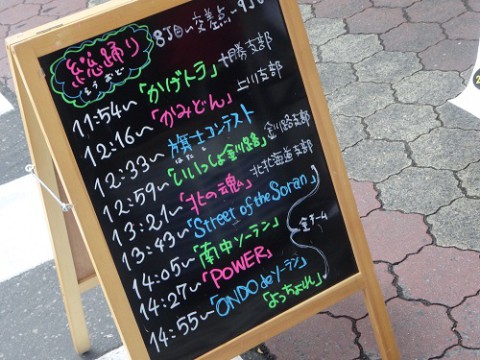 総踊り 8J目~交差点~9J
そう おど
11:54~「かげトラ」十勝支部
12:16~「かみどん」上川支部
12:33~旗士コンテスト
はたし
12:59~「いいっしょ釧路」釧路支部
13:21~「北の魂」北北海道支部
13:43~「Street of the Soran」
14:05~「南中ソーラン」
14:27~「POWER」
14:55~「ONDO de ソーラン」
「よっちょれ」
全チーム